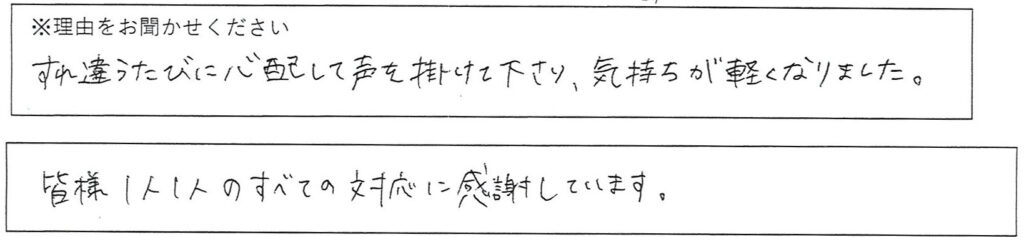 ※理由をお聞かせください
すれ違うたびに心配して声を掛けて下さり、気持ちが軽くなりました。
皆様1人1人のすべての対応に感謝しています。